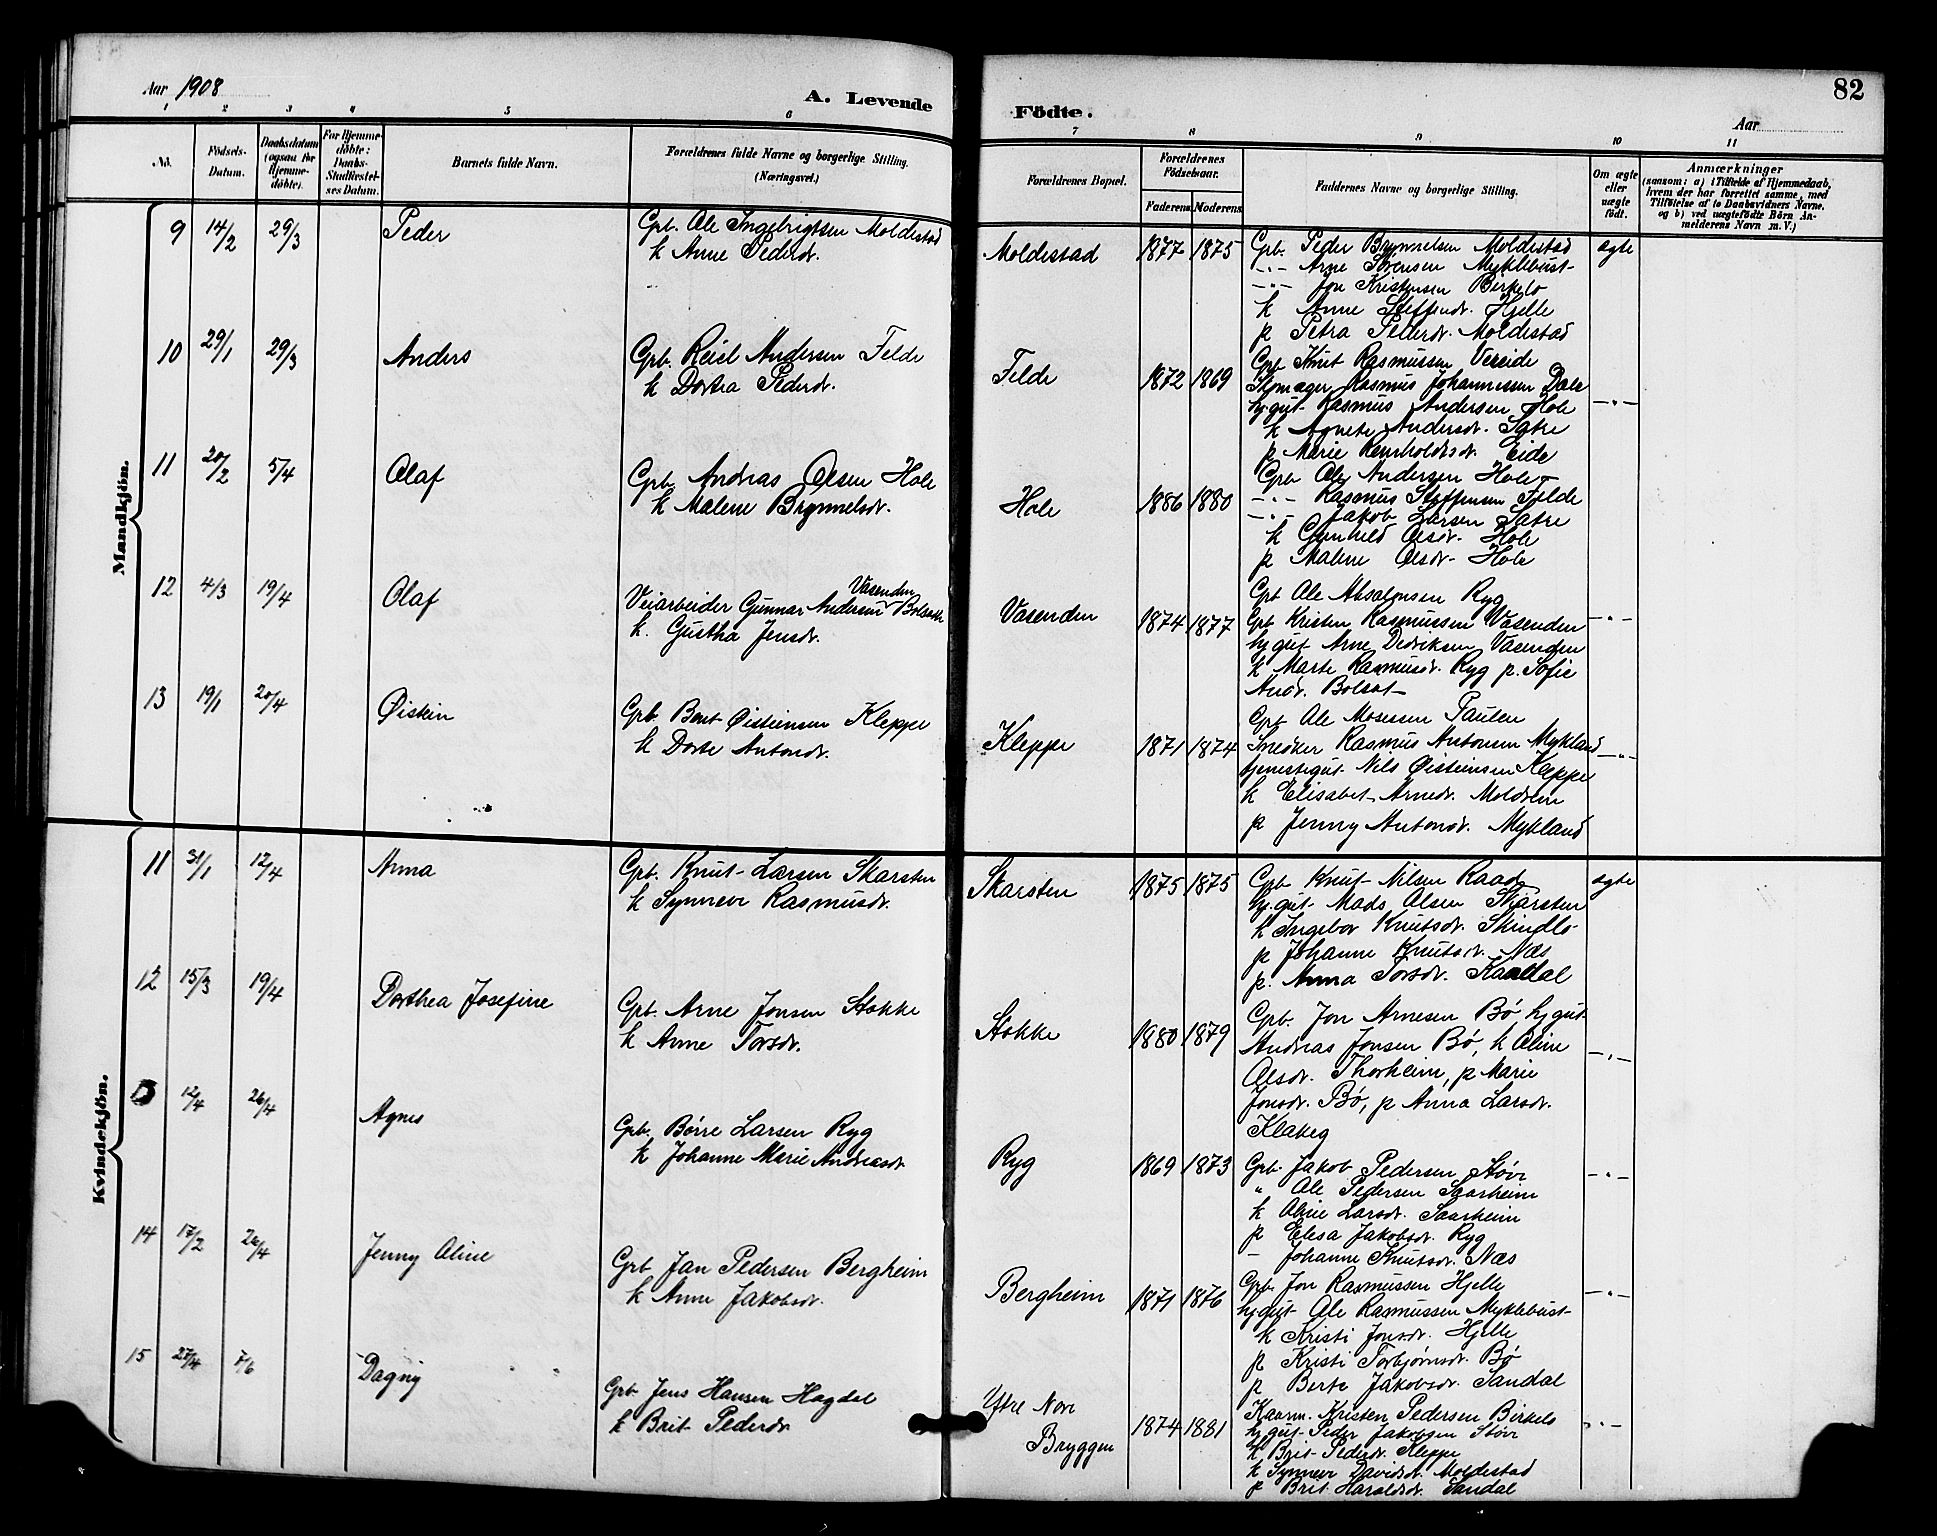 Aar 1908
A. Levende
Födte.
Aar
82
1 2 3 4 5 6 7 8 9 10 11
No.
Födsels-
Datum.
Daabsdatum
(ogsaa for
Hjemme-
döbte).
For Hjemme-
döbte:
Daabs-
Stadfestel-
ses Datum.
Barnets fulde Navn.
Forældrenes fulde Navne og borgerlige Stilling.
(Næringsvei.)
Forældrenes Bopæl.
Forældrenes
Födselsaar.
Faderens Moderens
Faddernes Navne og borgerlige Stilling.
Om ægte
eller
uægte
födt.
Anmærkninger
(saasom: a) i Tilfælde af Hjemmedaab,
hvem der har forrettet samme, med
Tilföielse af to Daabsvidners Navne,
og b) ved uægtefödte Börn An-
melderens Navn m. V.)
Mandkjön.
9 14/2 29/3 Peder Gpb. Ole Ingebrigtsen Moldestad
k Anne Pedersdr.
Moldestad 1877 1875 Gpb. Peder Brynnelsen Moldestad ægte
-"- Arne Sørensen Myklebust
-"- Jon Kristensen Birkelo
k Anne Steffendr. Hjelle
p Petra Pedersdr. Moldestad
10 29/1 29/3 Anders Gpb. Reisl Andersen Felde
k Dortea Pedersdr.
Felde 1872 1869 Gpb Knut Rasmussen Vereide
Skomager Rasmus Johannessen Dale -"-
hj.gut Rasmus Andersen Hole
k Agnete Andersdr. Sætre
p Marie Reinholdsdr. Eide
11 20/2 5/4 Olaf Gpb. Andreas Olsen Hole
k Malene Brynnelsdr.
Hole 1886 1880 Gpb Ole Andersen Hole
-"- Rasmus Steffensen Felde
-"- Jakob Larsen Sætre
k Gunhild Olsdr. Hole
p Malene Olsdr. Hole
12 4/3 19/4 Olaf Veiarbeider Gunnar Andersen Vasenden Bolsæt
k. Gustha Jensdr.
Vasenden 1874 1877 Gpb Ole Absalonsen Ryg
Gpb Kristen Rasmussen Vasenden -"-
hj gut Arne Didriksen Vasenden
k Marte Rasmusdr. Ryg p. Sofie
Andr. Bolsæt
13 19/1 20/4 Øistein Gpb. Bent Øisteinsen Kleppe
k Dorte Antondr.
Kleppe 1871 1874 Gpb Ole Mosessen Taulen
Snedker Rasmus Antonsen Mykland -"-
tjenestegut Nils Øisteinsen Kleppe
k Elisabet Arnedr. Moldrem
p Jenny Antonsdr. Mykland
Kvindekjön.
11 31/1 12/4 Anna Gpb. Knut Larsen Skarsten
k Synneve Rasmusdr.
Skarsten 1875 1875 Gpb Knut Nilsen Raad ægte
hj.gut Mads Olsen Skarsten
k Ingebor Knutsdr. Skindlo
p Johanne Knutsdr. Næs
p. Anna Torsdr. Kandal
12 15/3 19/4 Dorthea Josefine Gpb. Arne Jonsen Stokke
k Anne Torsdr.
Stokke 1880 1879 Gpb. Jon Arnesen Bø, hj gut
Andreas Jonsen Bø, k Oline -"-
Olsdr. Thorheim, p Marie
Jonsdr. Bø, p Anna Larsdr.
Klabeg
13 12/4 26/4 Agnes Gpb. Børre Larsen Ryg
k Johanne Marie Andreasdr
Ryg 1869 1873 Gpb. Jakob Pedersen Støve -"-
" Ole Pedersen Saarheim
k Oline Larsdr. Saarheim
p Elesa Jakobsdr. Ryg
- Johanne Knutsdr. Næs
14 17/2 26/4 Jenny Oline Gpb Jan Pedersen Bergheim
k Anne Jakobsdr.
Bergheim 1871 1876 Gpb. Jon Rasmussen Hjelle -"-
hj gut Ole Rasmussen Myklebust
k Kristi Jonsdr. Hjelle
p Kristi Torbjørnsdr. Bø
p Berte Jakobsdr. Sandal
15 27/4 7/6 Dagny Gpb. Jens Hansen Hagdal
k Brit Pedersdr
Ytre Nore
Bryggen 1874 1881 Kaarm. Kristen Pedersen Birkelo -"-
hj gut Peder Jakobsen Støve
k Brit Pedersdr. Kleppe
k Synneve Davidsdr. Moldestad
p Brit Haraldsdr. Sandal